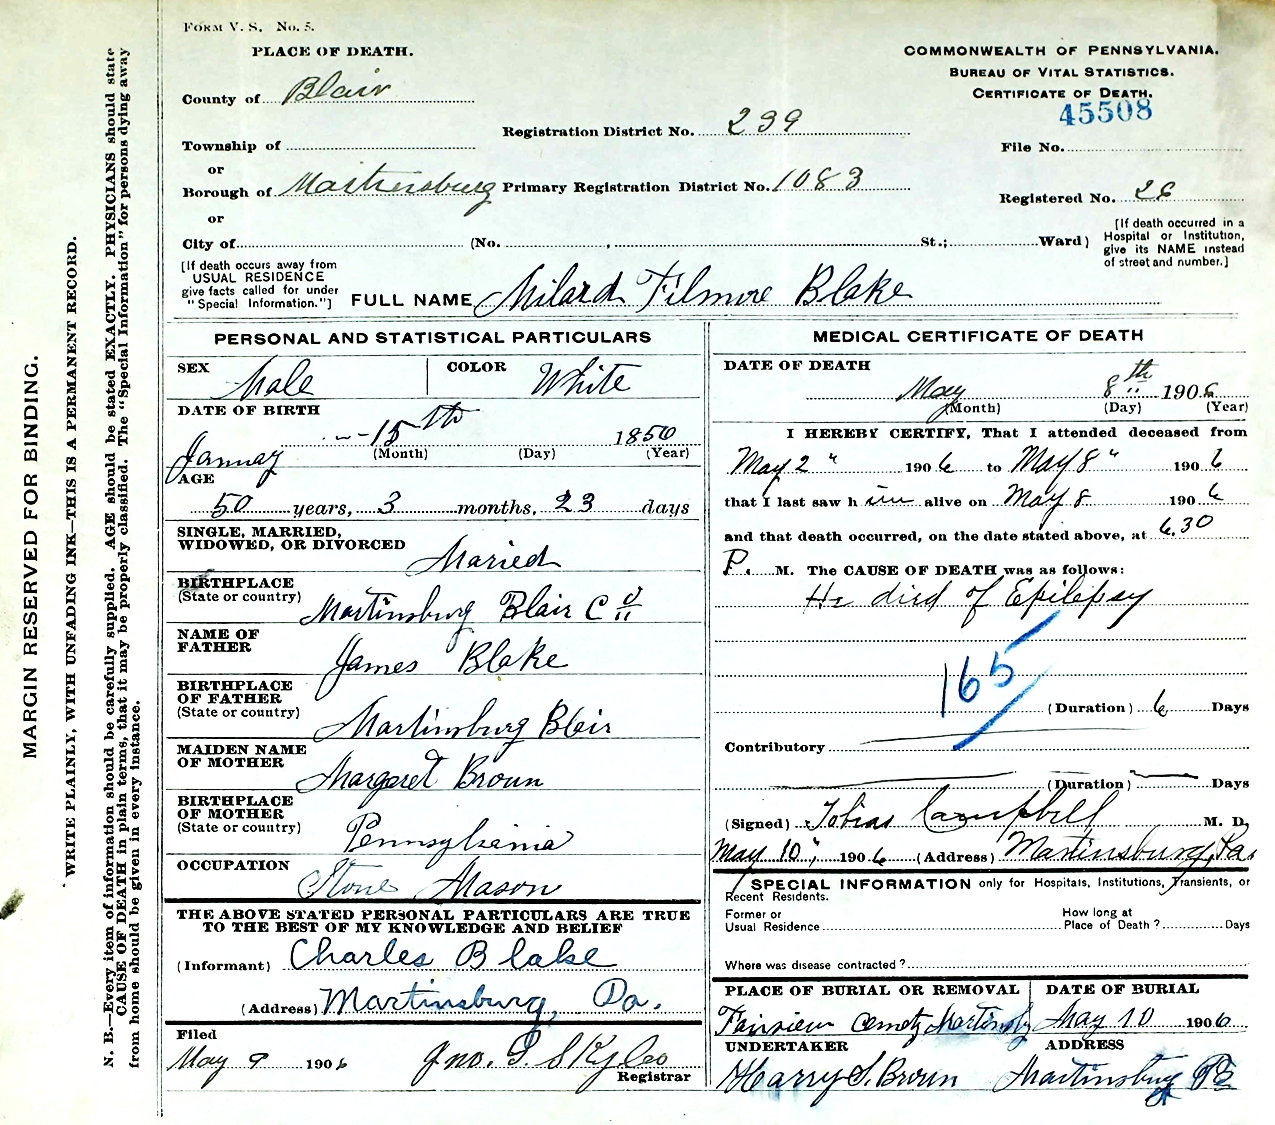 FORM V. S. No. 5.
PLACE OF DEATH.
County of Blair
Township of
or
Borough of Martinsburg
or
City of (No. , St.; Ward)
Registration District No. 239
Primary Registration District No. 1083
COMMONWEALTH OF PENNSYLVANIA.
BUREAU OF VITAL STATISTICS.
CERTIFICATE OF DEATH.
45508
File No.
Registered No. 26
[If death occurred in a
Hospital or Institution,
give its NAME instead
of street and number.]
[If death occurs away from
USUAL RESIDENCE
give facts called for under
"Special Information."]
FULL NAME Milard Filmore Blake
PERSONAL AND STATISTICAL PARTICULARS
SEX Male COLOR White
DATE OF BIRTH
January 15th 1856
(Month) (Day) (Year)
AGE
50 years, 3 months, 23 days
SINGLE, MARRIED,
WIDOWED, OR DIVORCED Maried
BIRTHPLACE
(State or country) Martinsburg Blair Co
NAME OF
FATHER James Blake
BIRTHPLACE
OF FATHER
(State or country) Martinsburg Blair
MAIDEN NAME
OF MOTHER Margaret Broun
BIRTHPLACE
OF MOTHER
(State or country) Pennsylvania
OCCUPATION Stone Mason
THE ABOVE STATED PERSONAL PARTICULARS ARE TRUE
TO THE BEST OF MY KNOWLEDGE AND BELIEF
(Informant) Charles Blake
(Address) Martinsburg, Pa.
Filed
May 9 1906
Registrar
MEDICAL CERTIFICATE OF DEATH
DATE OF DEATH
May 8th 1906
(Month) (Day) (Year)
I HEREBY CERTIFY, That I attended deceased from
May 2 " 1906 to May 8 " 1906
that I last saw him alive on May 8 1906
and that death occurred, on the date stated above, at 6.30
P. M. The CAUSE OF DEATH was as follows:
He died of Epilepsy
165
(Duration) 6 Days
Contributory
(Duration) Days
(Signed) Tobias Campbell M. D.
May 10", 1906 (Address) Martinsburg, Pa.
SPECIAL INFORMATION only for Hospitals, Institutions, Transients, or
Recent Residents.
Former or
Usual Residence
How long at
Place of Death? Days
Where was disease contracted?
PLACE OF BURIAL OR REMOVAL DATE OF BURIAL
Fairview Cemety Martinsbg May 10 1906
UNDERTAKER ADDRESS
Harry S. Brown Martinsburg Pa
MARGIN RESERVED FOR BINDING.
WRITE PLAINLY, WITH UNFADING INK—THIS IS A PERMANENT RECORD.
N. B.—Every item of information should be carefully supplied. AGE should be stated EXACTLY. PHYSICIANS should state
CAUSE OF DEATH in plain terms, that it may be properly classified. The "Special Information" for persons dying away
from home should be given in every instance.